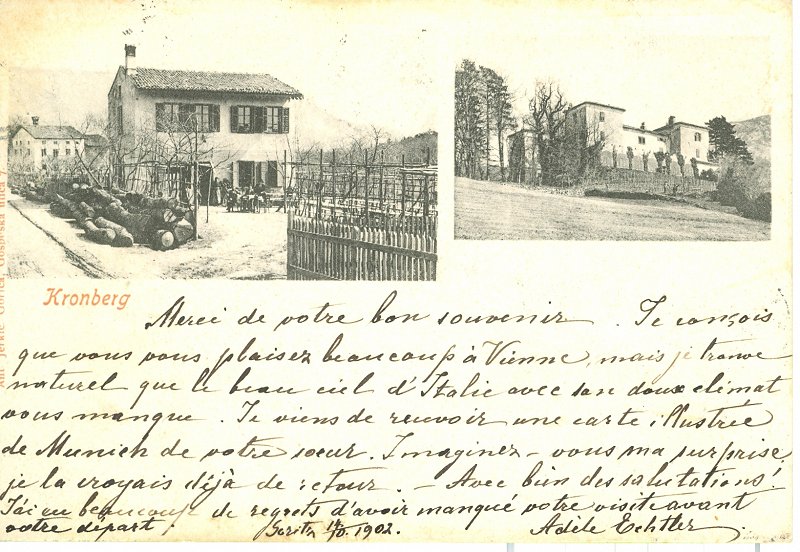 Kronberg
Ant. Jerkic Gorica, Gosposka ulica 7.
Merci de votre bon souvenir. Je conçois
que vous vous plaisez beaucoup à Vienne, mais je trouve
naturel que le beau ciel d'Italie avec son doux climat
vous manque. Je viens de recevoir une carte illustrée
de Munich de votre sœur. Imaginez-vous ma surprise,
je la croyais déjà de retour. – Avec bien des salutations!
J'ai eu beaucoup de regrets d'avoir manqué votre visite avant
votre départ.
Goritz 1902.
Adèle Echtler